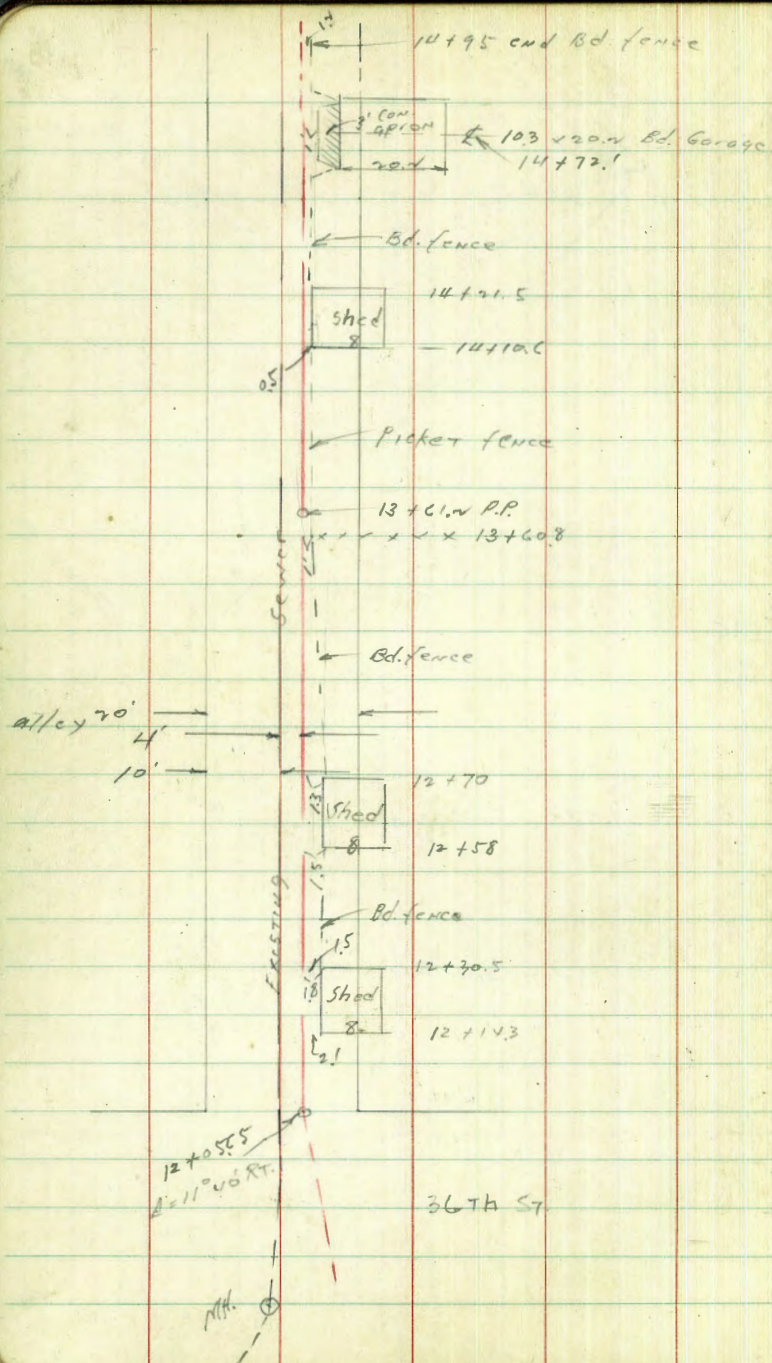 1.2
14+95 end Bd. fence
3' con
apron
1.2
20.2
℄ 10.3 x 20.2 Bd. Garage
14+72.1
Bd. fence
14+21.5
Shed
8
14+10.6
0.5
Picket fence
13+61.2 P.P.
13+60.8
1.5
Sewer
Bd. fence
alley 20'
4'
10'
12+70
1.3
Shed
8
12+58
1.5
Existing
Bd. fence
1.5
12+30.5
1.8
Shed
8
12+14.3
2.1
12+05.65
Δ=11°40' RT.
36th St.
MH.